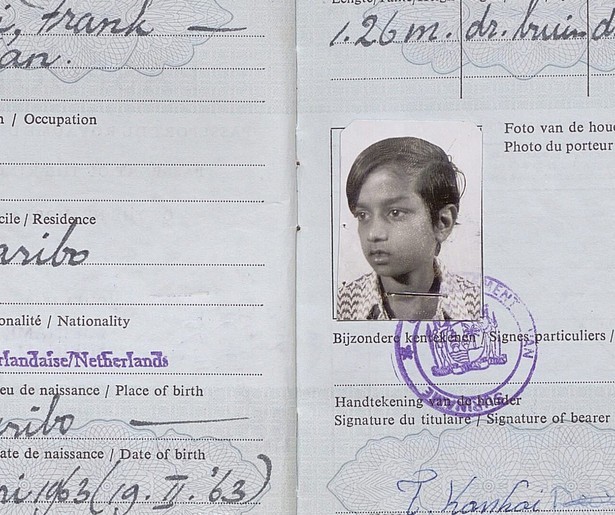 , Frank
an.
/ Occupation
cile / Residence
aribo
onalité / Nationality
rlandaise/Netherlands
eu de naissance / Place of birth
aribo
ate de naissance / Date of birth
ri 1963 (19. II. '63)
1.26 m. dr. bruin d
Foto van de hou
Photo du porteur
Bijzondere kentekenen / Signes particuliers /
Handtekening van de houder
Signature du titulaire / Signature of bearer
Kanhai